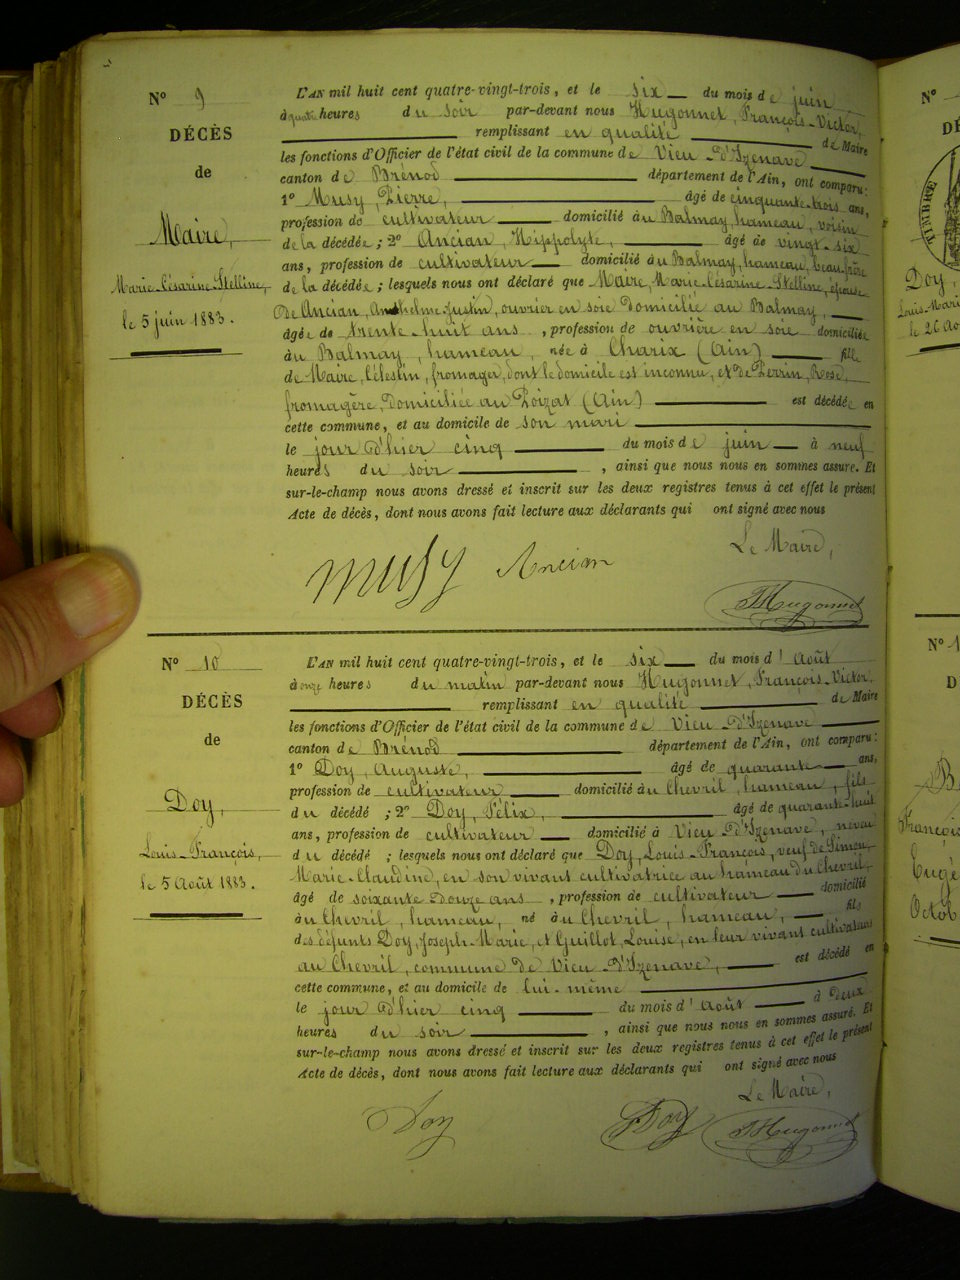 N° 9
DÉCÈS
de
Maire,
Marie-Césarine-Stelline,
le 5 juin 1883.
L'AN mil huit cent quatre-vingt-trois, et le six du mois de juin
à quatre heures du soir par-devant nous Hugonnet, François-Victor,
remplissant en qualité de Maire
les fonctions d'Officier de l'état civil de la commune de Vieu-d'Izenave
canton de Brénod département de l'Ain, ont comparu:
1° Musy, Pierre, âgé de cinquante-trois ans,
profession de cultivateur domicilié au Balmay, hameau, voisin
de la décédée; 2° Ancian, Hippolyte, âgé de vingt-six
ans, profession de cultivateur domicilié au Balmay, hameau, beau-frère
de la décédée; lesquels nous ont déclaré que Maire, Marie-Césarine-Stelline, épouse
De Ancian, Anthelme-Justin, ouvrier en soie domicilié au Balmay,
âgée de trente-huit ans, profession de ouvrière en soie domiciliée
au Balmay, hameau, née à Charix (Ain) fille
de Maire, Célestin, fromager, dont le domicile est inconnu, et de Perrin, Rose,
fromagère, domiciliée au Poizat (Ain) est décédée en
cette commune, et au domicile de son mari
le jour d'hier cinq du mois de juin à neuf
heures du soir, ainsi que nous nous en sommes assuré. Et
sur-le-champ nous avons dressé et inscrit sur les deux registres tenus à cet effet le présent
Acte de décès, dont nous avons fait lecture aux déclarants qui ont signé avec nous
Le Maire,
Musy Ancian
Hugonnet
N° 10
DÉCÈS
de
Doy,
Louis-François,
le 5 Août 1883.
L'AN mil huit cent quatre-vingt-trois, et le six du mois d'Août
à onze heures du matin par-devant nous Hugonnet, François-Victor,
remplissant en qualité de Maire
les fonctions d'Officier de l'état civil de la commune de Vieu-d'Izenave
canton de Brénod département de l'Ain, ont comparu:
1° Doy, Auguste, âgé de quarante ans,
profession de cultivateur domicilié au Chevril, hameau, fils
du décédé; 2° Doy, Félix, âgé de quarante-huit
ans, profession de cultivateur domicilié à Vieu-d'Izenave, neveu
du décédé; lesquels nous ont déclaré que Doy, Louis-François, veuf de Simon,
Marie-Claudine, en son vivant cultivatrice au hameau du Chevril,
âgé de soixante-douze ans, profession de cultivateur domicilié
au Chevril, hameau, né au Chevril, hameau, fils
des défunts Doy, Joseph-Marie, et Guillot, Louise, en leur vivant cultivateurs
au Chevril, commune de Vieu-d'Izenave, est décédé en
cette commune, et au domicile de lui-même
le jour d'hier cinq du mois d'Août à deux
heures du soir, ainsi que nous nous en sommes assuré. Et
sur-le-champ nous avons dressé et inscrit sur les deux registres tenus à cet effet le présent
Acte de décès, dont nous avons fait lecture aux déclarants qui ont signé avec nous
Le Maire,
Doy Doy Hugonnet
N°
TIMBRE
Doy,
N° 1